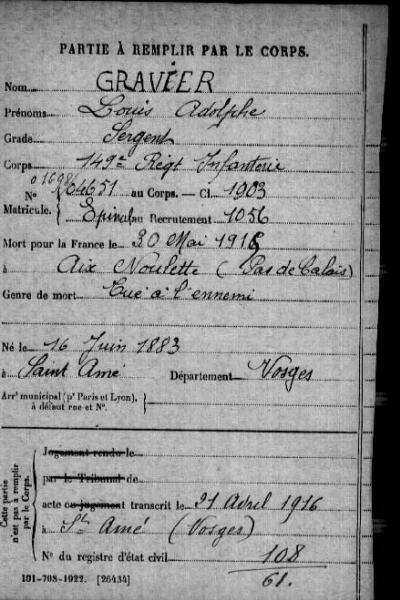 PARTIE À REMPLIR PAR LE CORPS.
Nom GRAVIER
Prénoms Louis Adolphe
Grade Sergent
Corps 149e Régt Infanterie
No 01698/64651 au Corps. — Cl. 1903
Matricule. Epinal au Recrutement 1056
Mort pour la France le 30 Mai 1915
à Aix Noulette (Pas de Calais)
Genre de mort Tué à l'ennemi
Né le 16 Juin 1883
à Saint Amé Département Vosges
Arrt municipal (pr Paris et Lyon), à défaut rue et No.
Cette partie n'est pas à remplir par le Corps.
Jugement rendu le
par le Tribunal de
acte ou jugement transcrit le 21 Avril 1916
à St Amé (Vosges)
No du registre d'état civil 108
61.
101-708-1922. [26434]